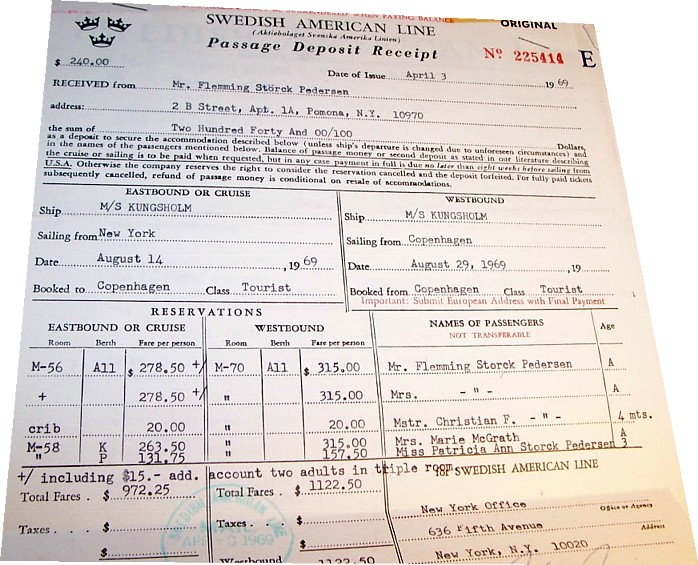 SURRENDERED WHEN PAYING BALANCE
SWEDISH AMERICAN LINE
(Aktiebolaget Svenska Amerika Linien)
Passage Deposit Receipt
ORIGINAL
Nº 225414 E
$ 240.00
Date of Issue April 3 1969
RECEIVED from Mr. Flemming Storck Pedersen
address: 2 B Street, Apt. 1A, Pomona, N.Y. 10970
the sum of Two Hundred Forty And 00/100 Dollars,
as a deposit to secure the accommodation described below (unless ship's departure is changed due to unforeseen circumstances) and
in the names of the passengers mentioned below. Balance of passage money or second deposit as stated in our literature describing
the cruise or sailing is to be paid when requested, but in any case payment in full is due no later than eight weeks before sailing from
U.S.A. Otherwise the company reserves the right to consider the reservation cancelled and the deposit forfeited. For fully paid tickets
subsequently cancelled, refund of passage money is conditional on resale of accommodations.
EASTBOUND OR CRUISE
Ship M/S KUNGSHOLM
Sailing from New York
Date August 14, 1969
Booked to Copenhagen Class Tourist
WESTBOUND
Ship M/S KUNGSHOLM
Sailing from Copenhagen
Date August 29, 1969, 19
Booked from Copenhagen Class Tourist
Important: Submit European Address with Final Payment
RESERVATIONS
EASTBOUND OR CRUISE WESTBOUND NAMES OF PASSENGERS Age
NOT TRANSFERABLE
Room Berth Fare per person Room Berth Fare per person
M-56 All $ 278.50 +/ M-70 All $ 315.00 Mr. Flemming Storck Pedersen A
+ 278.50 +/ " 315.00 Mrs. - " - A
crib 20.00 " 20.00 Mstr. Christian F. - " - 4 mts.
M-58 K 263.50 " 315.00 Mrs. Marie McGrath A
" P 131.75 " 157.50 Miss Patricia Ann Storck Pedersen 3
+/ including $15.- add. account two adults in triple room.
for SWEDISH AMERICAN LINE
Total Fares . $ 972.25 Total Fares . $ 1122.50
New York Office Office or Agency
Taxes . . . $ Taxes . . . $
636 Fifth Avenue Address
New York, N.Y. 10020
$
SWEDISH AMERICAN LINE
APR 3 1969
Westbound 1122.50